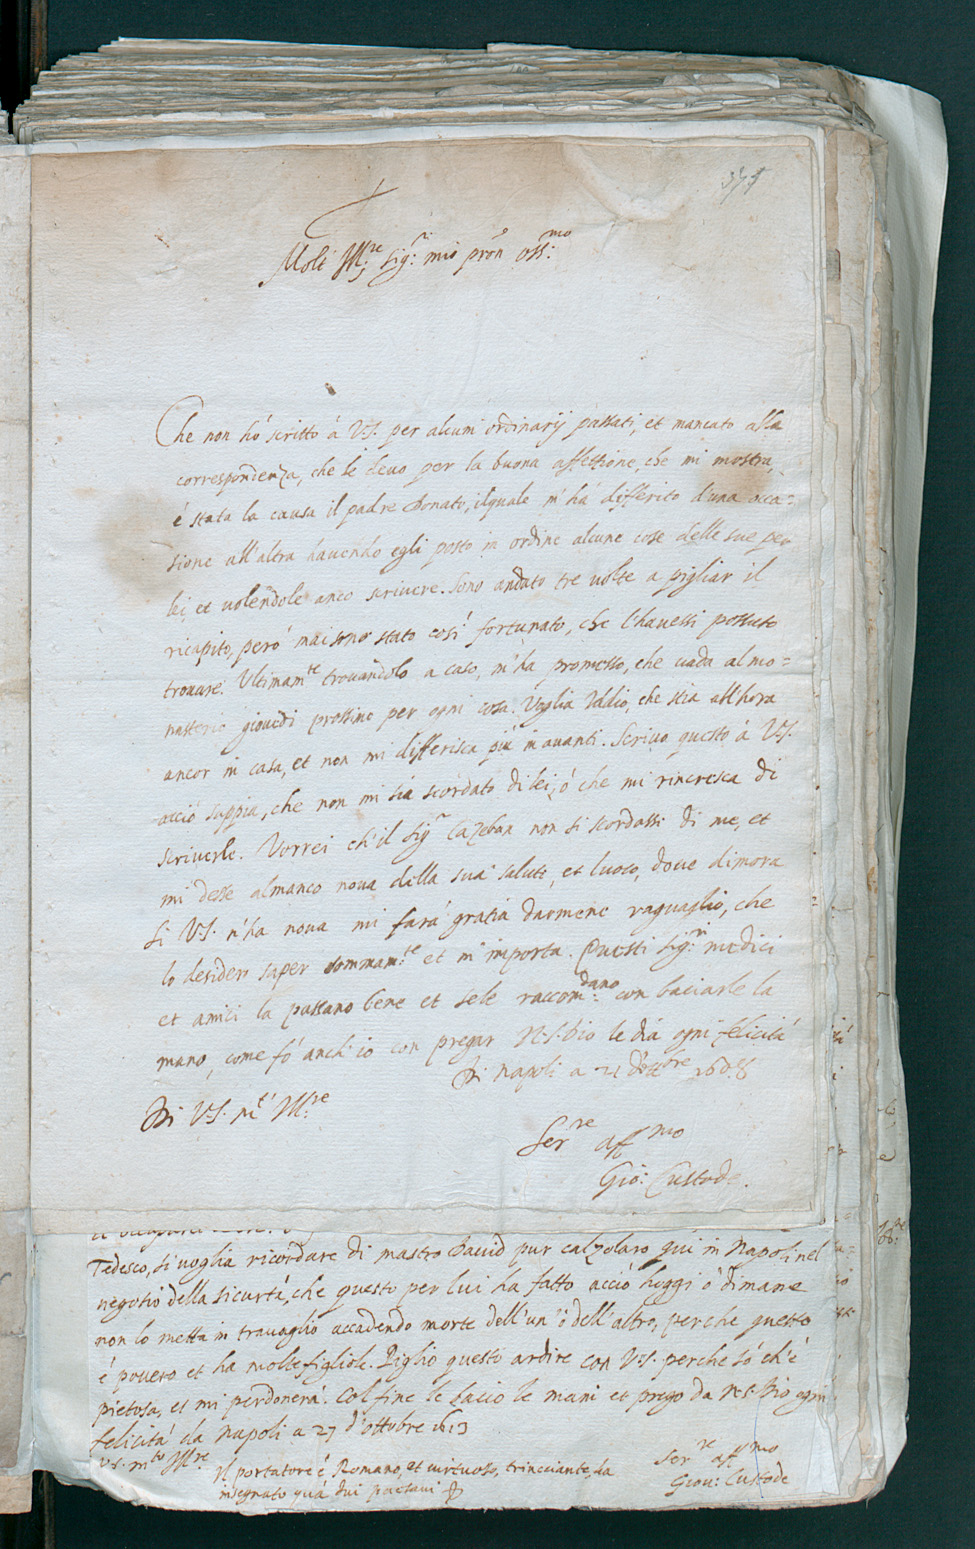 Molt Ill.re Sig.r mio pron oss.mo
Che non hò scritto à V.S. per alcuni ordinarij passati, et mancato alla
correspondenza, che le devo per la buona affettione, che mi mostra,
è stata la causa il padre Donato, ilquale m'hà differito d'una occa=
sione all'altra havendo egli posto in ordine alcune cose delle sue per
lei, et volendole anco scrivere. Sono andato tre volte a pigliar il
ricapito, però mai sono stato così fortunato, che l'havessi possuto
trovare. Ultimam.te trovandolo a caso, m'ha promesso, che vada al mo=
nasterio giovedi prossimo per ogni cosa. Voglia Iddio, che stia all'hora
ancor in casa, et non mi differisca più in avanti. Scrivo questo à V.S.
acciò sappia, che non mi sia scordato di lei, ò che mi rincresca di
scriverle. Vorrei ch'il Sig.r Cazeban non si scordassi di me, et
mi desse almanco nova della sua salute, et luoco, dove dimora
Si V.S. n'ha nova mi farà gratia darmene raguaglio, che
lo desidero saper sommam.te et m'importa. Questi Sig.ri medici
et amici la passano bene et sele raccom.dano con baciarle la
mano, come fò anch'io con pregar N.S. Dio le dia ogni felicità
Di Napoli a 21 d'ottbre 1608
Di V.S. m.to Ill.re
Ser.re aff.mo
Gio: Custode.
Tedesco, si voglia ricordare di mastro David pur calzolaro qui in Napoli nel
negotio della sicurtà, che questo per lui ha fatto acciò hoggi ò dimane
non lo metta in travaglio accadendo morte dell'un ò dell'altro, perche questo
è povero et ha molte figliole. Piglio questo ardire con V.S. perche sò ch'è
pietosa, et mi perdonerà. Col fine le bacio le mani et prego da N.S. Dio ogni
felicità da Napoli a 27 d'ottobre 1613
V.S. m.to Ill.re
Il portatore è Romano, et virtuoso, trinciante, ha
insegnato quà dui paesani
Ser.re aff.mo
Giov: Custode